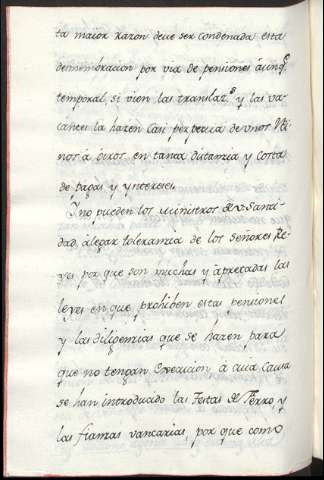 ta maior razon deue ser condenada esta
desmembracion por via de pensiones áunq.e
temporal, si vien las translaz.s y las va-
cantes la hazen casi perpetua de vnos Rei
nos á otros en tanta distanzia y costa
de tagas y ynterees.
Y no pueden los ministros de v. Santi-
dad, álegar toleranzia de los señores Re-
yes por que son muchas y ápretadas las
leyes en que prohiben estas pensiones
y las diligenzias que se hazen para
que no tengan execucion, á cuia causa
se han introducido las Testas de Ferro, y
las fianzas vancarias, por que como